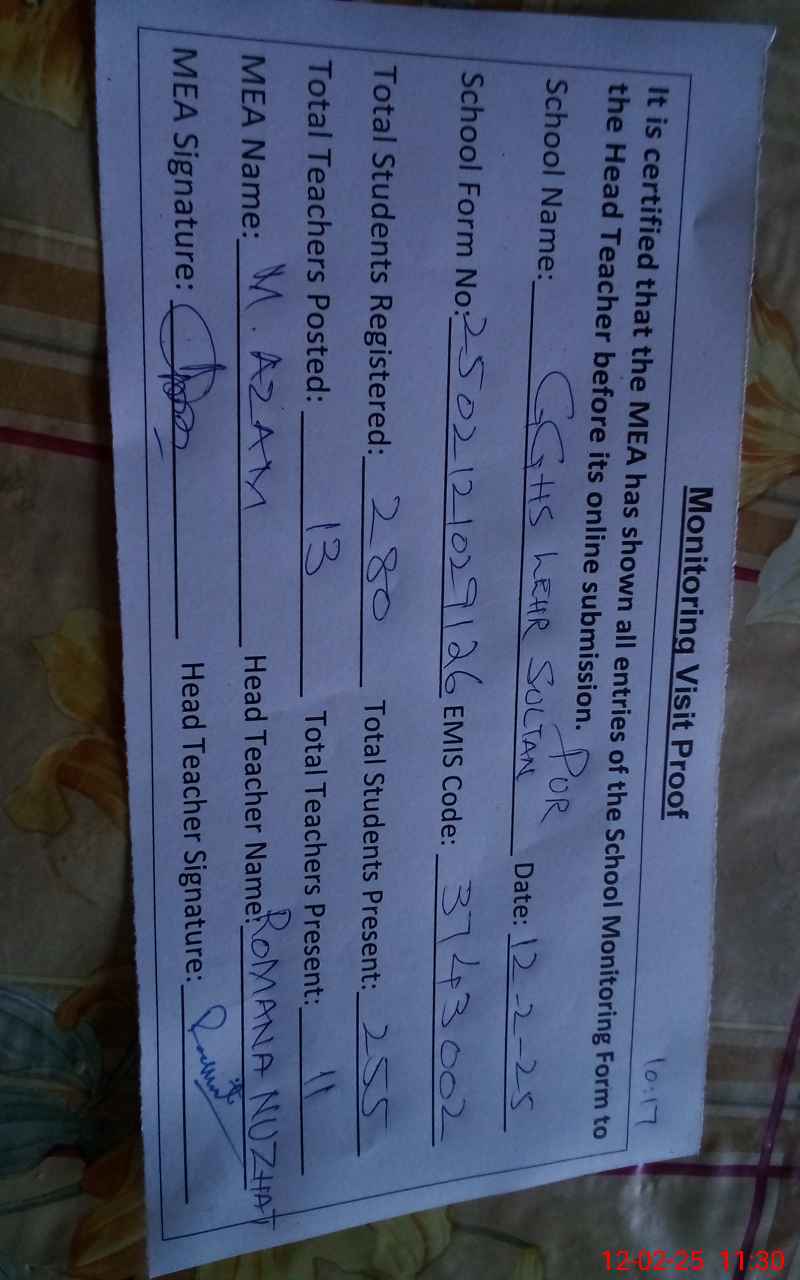 10:17
Monitoring Visit Proof
It is certified that the MEA has shown all entries of the School Monitoring Form to
the Head Teacher before its online submission.
School Name: GGHS LEHR SULTAN PUR Date: 12-2-25
School Form No: 2502121029126 EMIS Code: 3743002
Total Students Registered: 280 Total Students Present: 255
Total Teachers Posted: 13 Total Teachers Present: 11
MEA Name: M. AZAM Head Teacher Name: ROMANA NUZHAT
MEA Signature: Head Teacher Signature:
12-02-25 11:30